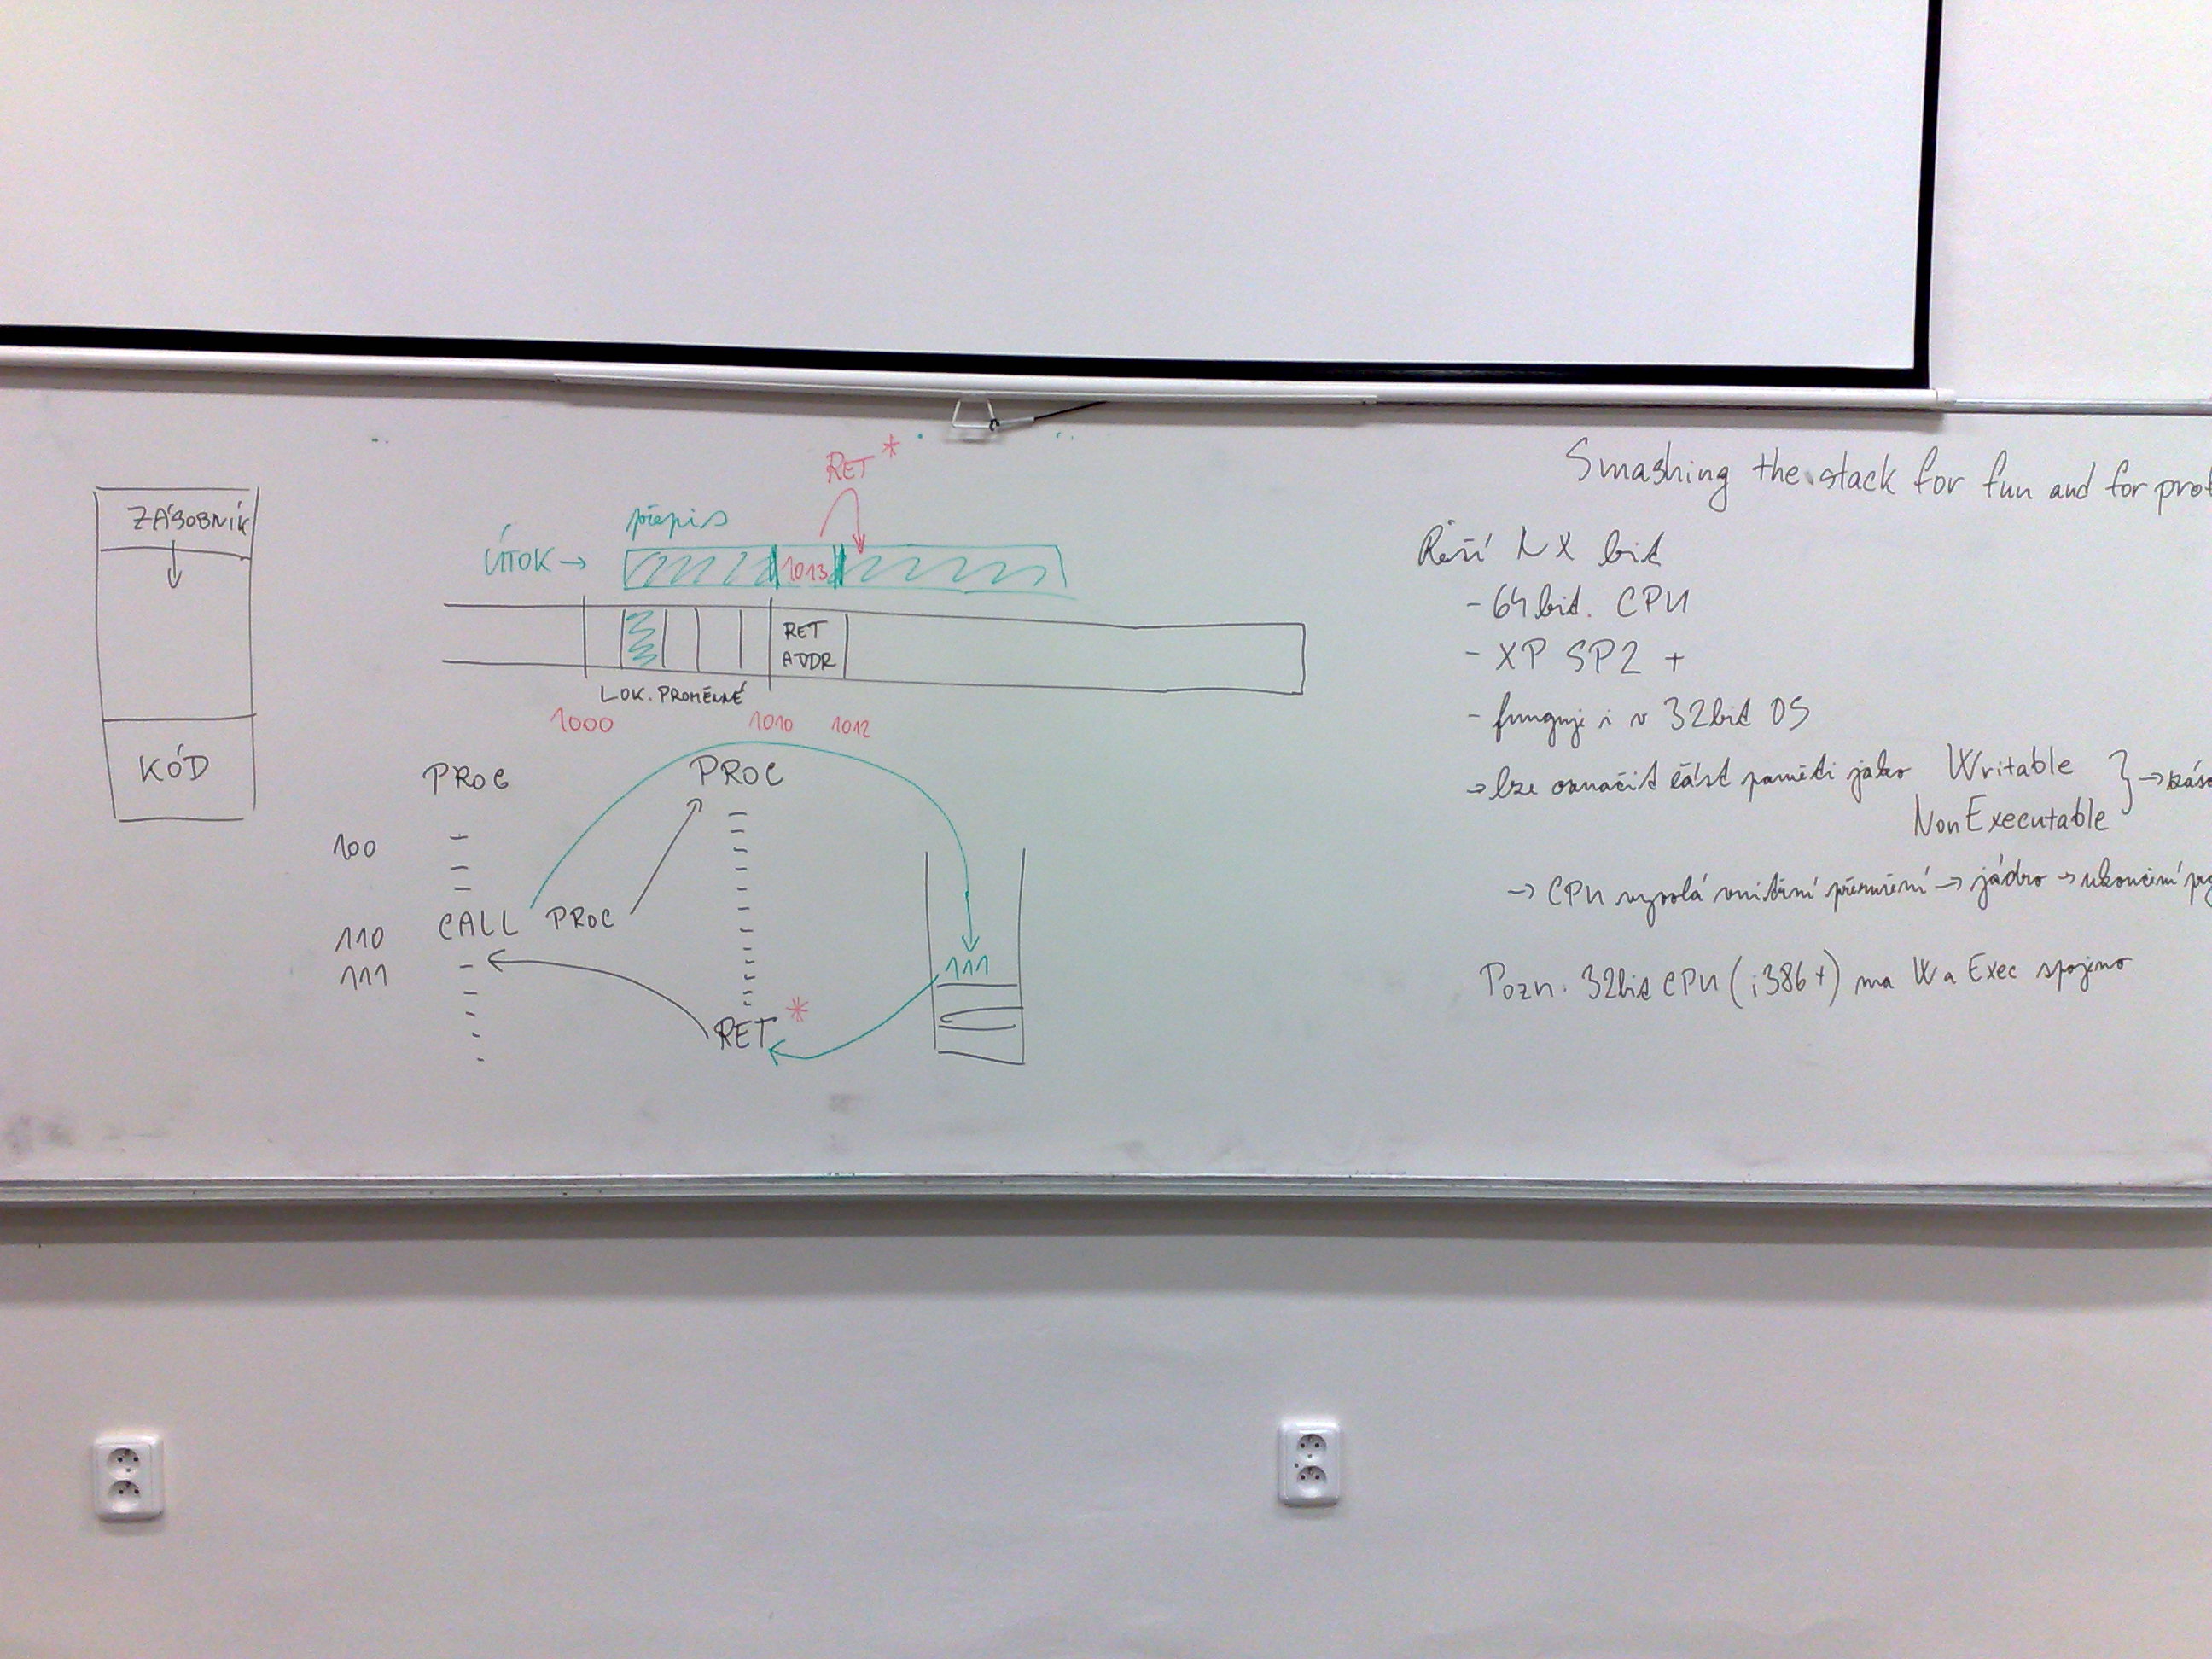 ZÁSOBNÍK
KÓD
RET *
přepis
ÚTOK →
1013
RET
ADDR
LOK. PROMĚNNÉ
1000 1010 1012
PROG
PROC
100
110 CALL PROC
111
111
RET *
Smashing the stack for fun and for prof
Řeší NX bit
- 64 bit. CPU
- XP SP2 +
- funguje i v 32bit OS
→ lze označit část paměti jako Writable
NonExecutable } → záso
→ CPU vyvolá vnitřní přerušení → jádro → ukončení prg
Pozn. 32bit CPU (i386+) ma W a Exec spojeno